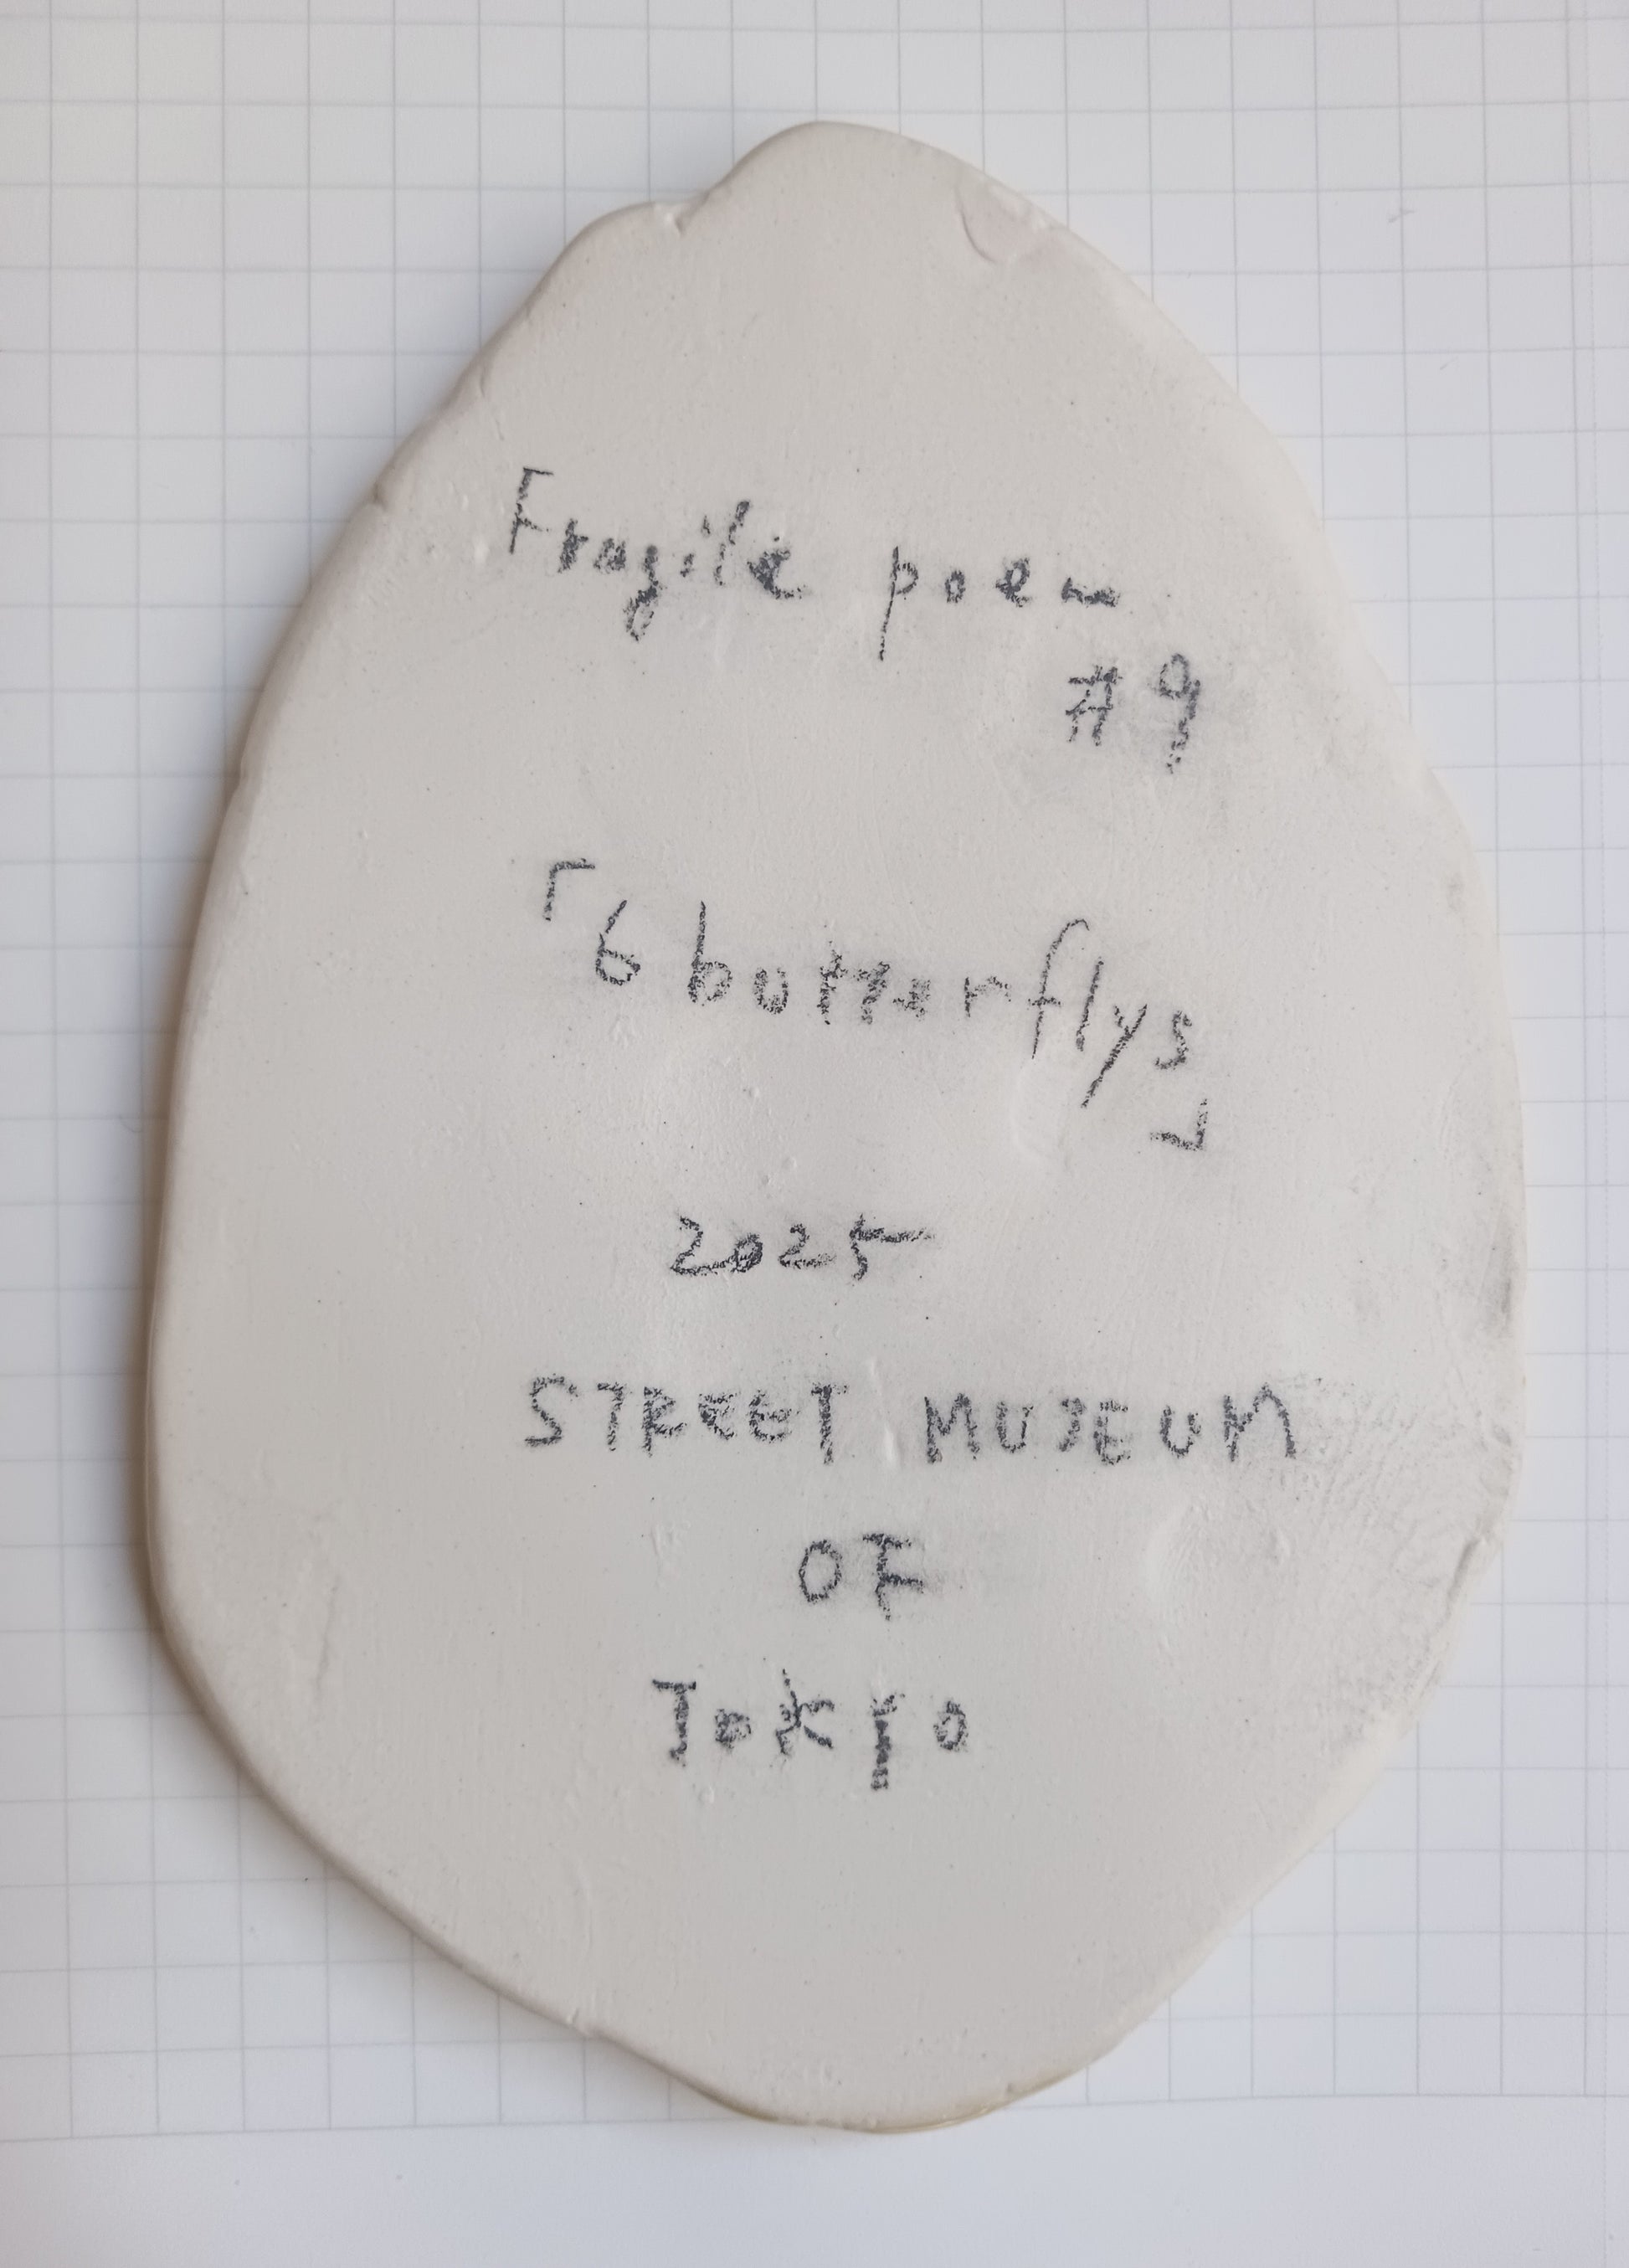 Fragile poem
#9
「6 butterflys」
2025
STREET MUSEUM
OF
Tokyo